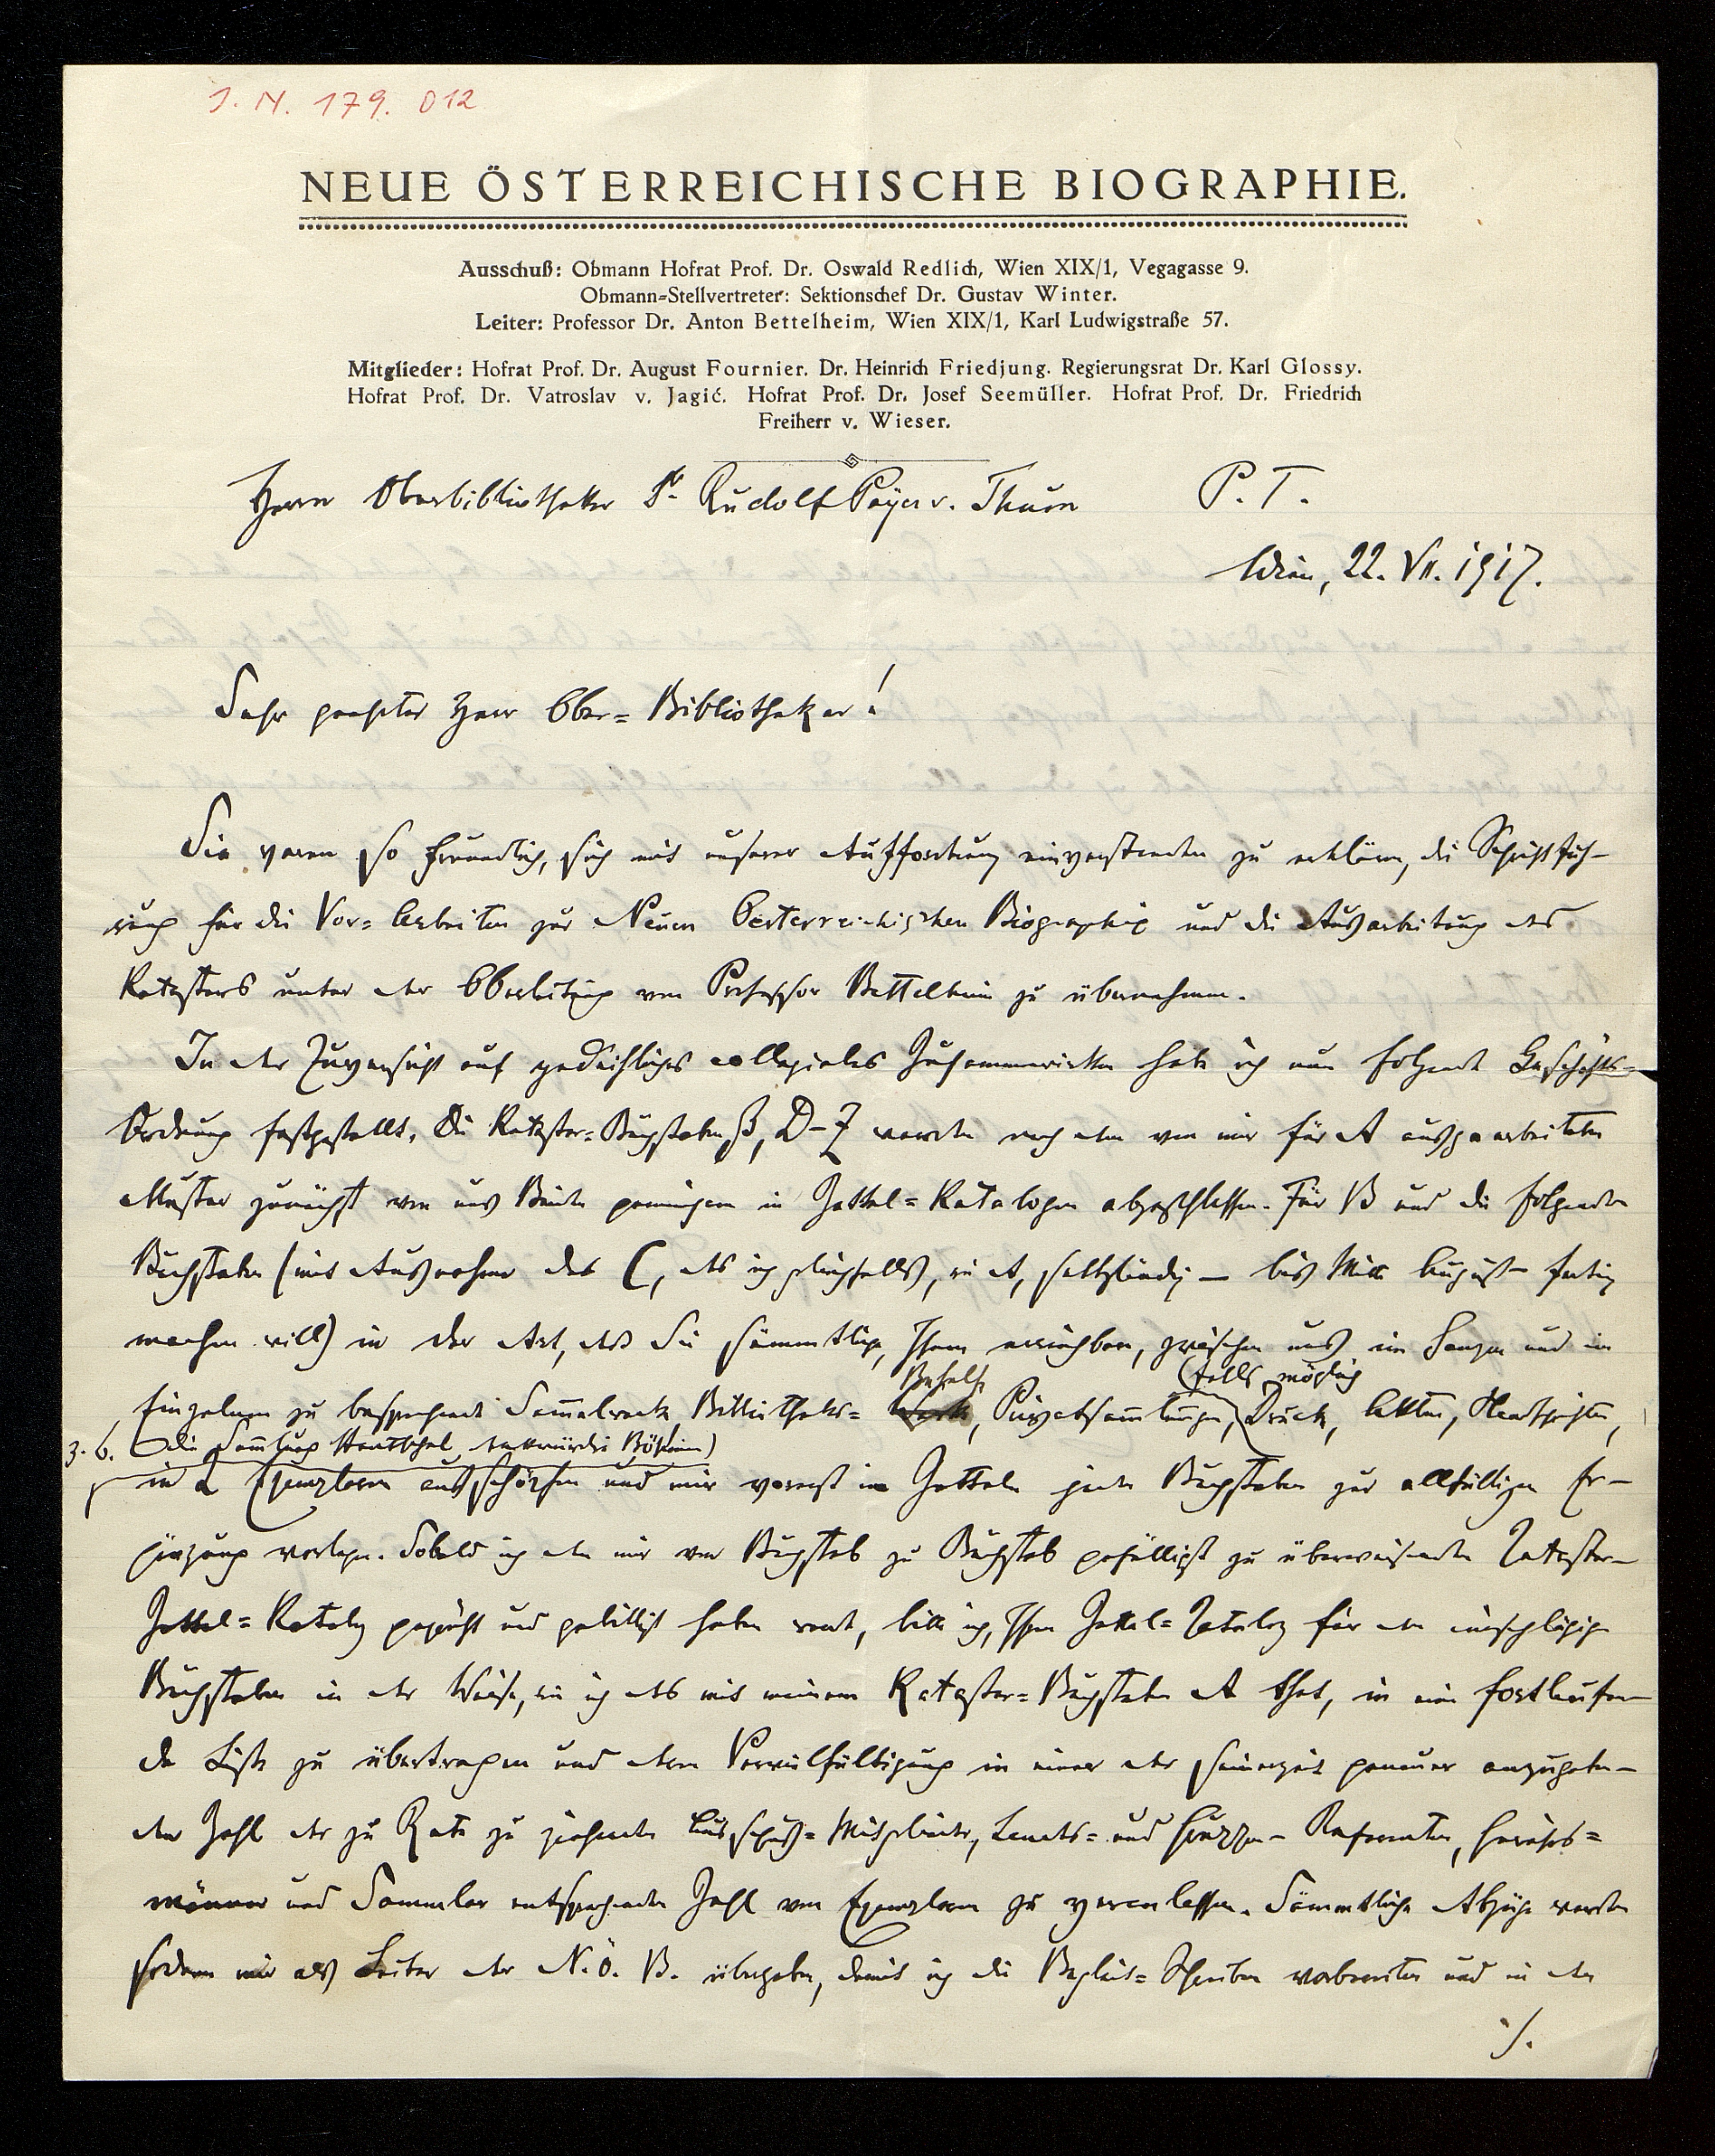 I. N. 179. 012
NEUE ÖSTERREICHISCHE BIOGRAPHIE.
Ausschuß: Obmann Hofrat Prof. Dr. Oswald Redlich, Wien XIX/1, Vegagasse 9.
Obmann-Stellvertreter: Sektionschef Dr. Gustav Winter.
Leiter: Professor Dr. Anton Bettelheim, Wien XIX/1, Karl Ludwigstraße 57.
Mitglieder: Hofrat Prof. Dr. August Fournier. Dr. Heinrich Friedjung. Regierungsrat Dr. Karl Glossy.
Hofrat Prof. Dr. Vatroslav v. Jagić. Hofrat Prof. Dr. Josef Seemüller. Hofrat Prof. Dr. Friedrich
Freiherr v. Wieser.
Herrn Oberbibliothekar Dr Rudolf Payer v. Thurn P. T.
Wien, 22. VII. 1917.
Sehr geehrter Herr Ober-Bibliothekar!
Sie waren so freundlich, sich mit unserer Aufforderung einverstanden zu erklären, die Schriftfüh-
rung für die Vor-Arbeiten zur Neuen Oesterreichischen Biographie und die Ausarbeitung des
Katasters unter der Oberleitung von Professor Bettelheim zu übernehmen.
In der Zuversicht auf gedeihliches collegiales Zusammenwirken habe ich nun folgende Geschäfts-
Ordnung festgestellt. Die Kataster-Buchstaben B, D-Z werden nach dem von mir für A ausgearbeiteten
Muster zunächst von uns Beiden gemeinsam in Zettel-Katalogen abgeschlossen. Für B und die folgenden
Buchstaben (mit Ausnahme des C, das ich gleichfalls, wie A, selbständig – bis Mitte August – fertig
machen will) in der Art, daß Sie sämmtliche, Ihnen erreichbaren, zwischen uns im Ganzen und im
Behelfe (falls möglich
Einzelnen zu besprechende Sammelwerke, Bibliotheks- Privatsammlungen, Druck, Akten, Handschriften,
z. B. die Sammlung
in 2 Exemplaren ausschöpfen und mir vorerst im Zetteln jeden Buchstaben zur allfälligen Er-
gänzung vorlegen. Sobald ich den mir von Buchstab zu Buchstab gefälligst zu überweisenden Kataster-
Zettel-Katalog geprüft und gebilligt haben werde, bitte ich, Ihren Zettel-Katalog für den einschlägigen
Buchstaben in der Weise, wie ich das mit meinem Kataster-Buchstaben A that, in eine fortlaufen-
de Liste zu übertragen und deren Vervielfältigung in einer der seinerzeit genauer anzugeben-
den Zahl der zu Rate zu ziehenden Ausschuß-Mitglieder, Landes- und Gruppen-Referenten, Gewährs-
männer und Sammler entsprechenden Zahl von Exemplaren zu veranlassen. Sämmtliche Abzüge werden
sodann mir als Leiter der N. Ö. B. übergeben, damit ich die Begleit-Schreiben vorbereiten und in den
./.